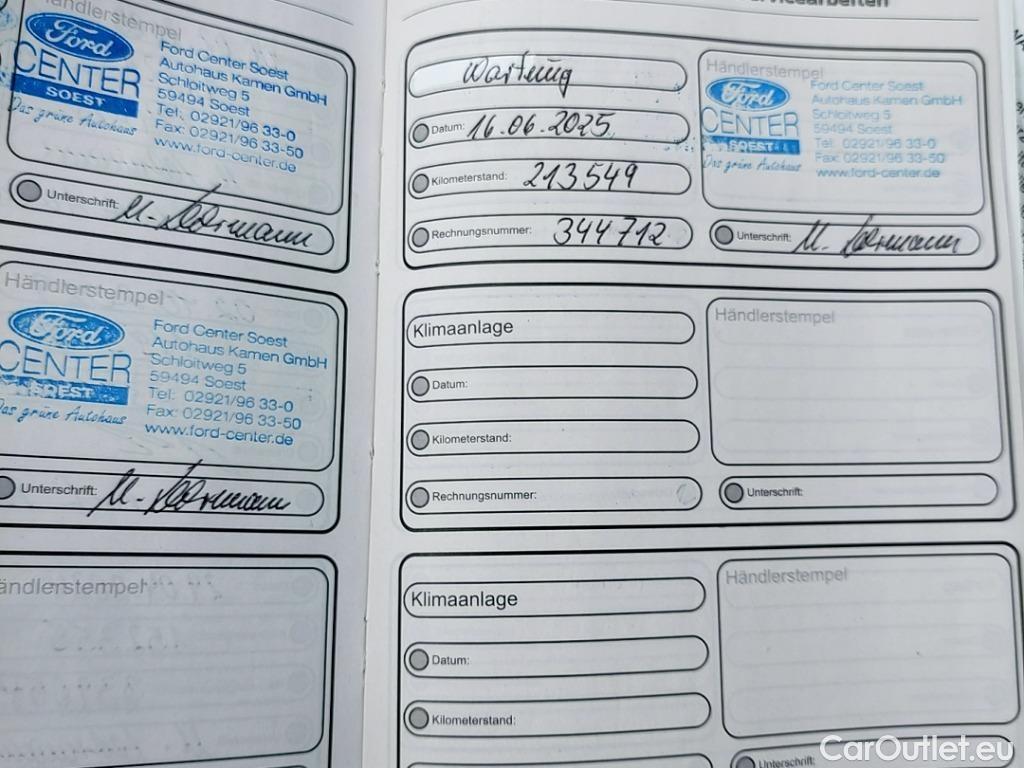 Händlerstempel
Ford
CENTER
SOEST
Das grüne Autohaus
Ford Center Soest
Autohaus Kamen GmbH
Schloitweg 5
59494 Soest
Tel: 02921/96 33-0
Fax: 02921/96 33-50
www.ford-center.de
Unterschrift:
Händlerstempel
Ford
CENTER
SOEST
Das grüne Autohaus
Ford Center Soest
Autohaus Kamen GmbH
Schloitweg 5
59494 Soest
Tel: 02921/96 33-0
Fax: 02921/96 33-50
www.ford-center.de
Unterschrift:
ändlerstempel
Wartung
Datum: 16.06.2025
Kilometerstand: 213549
Rechnungsnummer: 344712
Händlerstempel
Ford
CENTER
SOEST
Das grüne Autohaus
Ford Center Soest
Autohaus Kamen GmbH
Schloitweg 5
59494 Soest
Tel: 02921/96 33-0
Fax: 02921/96 33-50
www.ford-center.de
Unterschrift:
Klimaanlage
Datum:
Kilometerstand:
Rechnungsnummer:
Händlerstempel
Unterschrift:
Klimaanlage
Datum:
Kilometerstand:
Händlerstempel
Unterschrift:
CarOutlet.eu